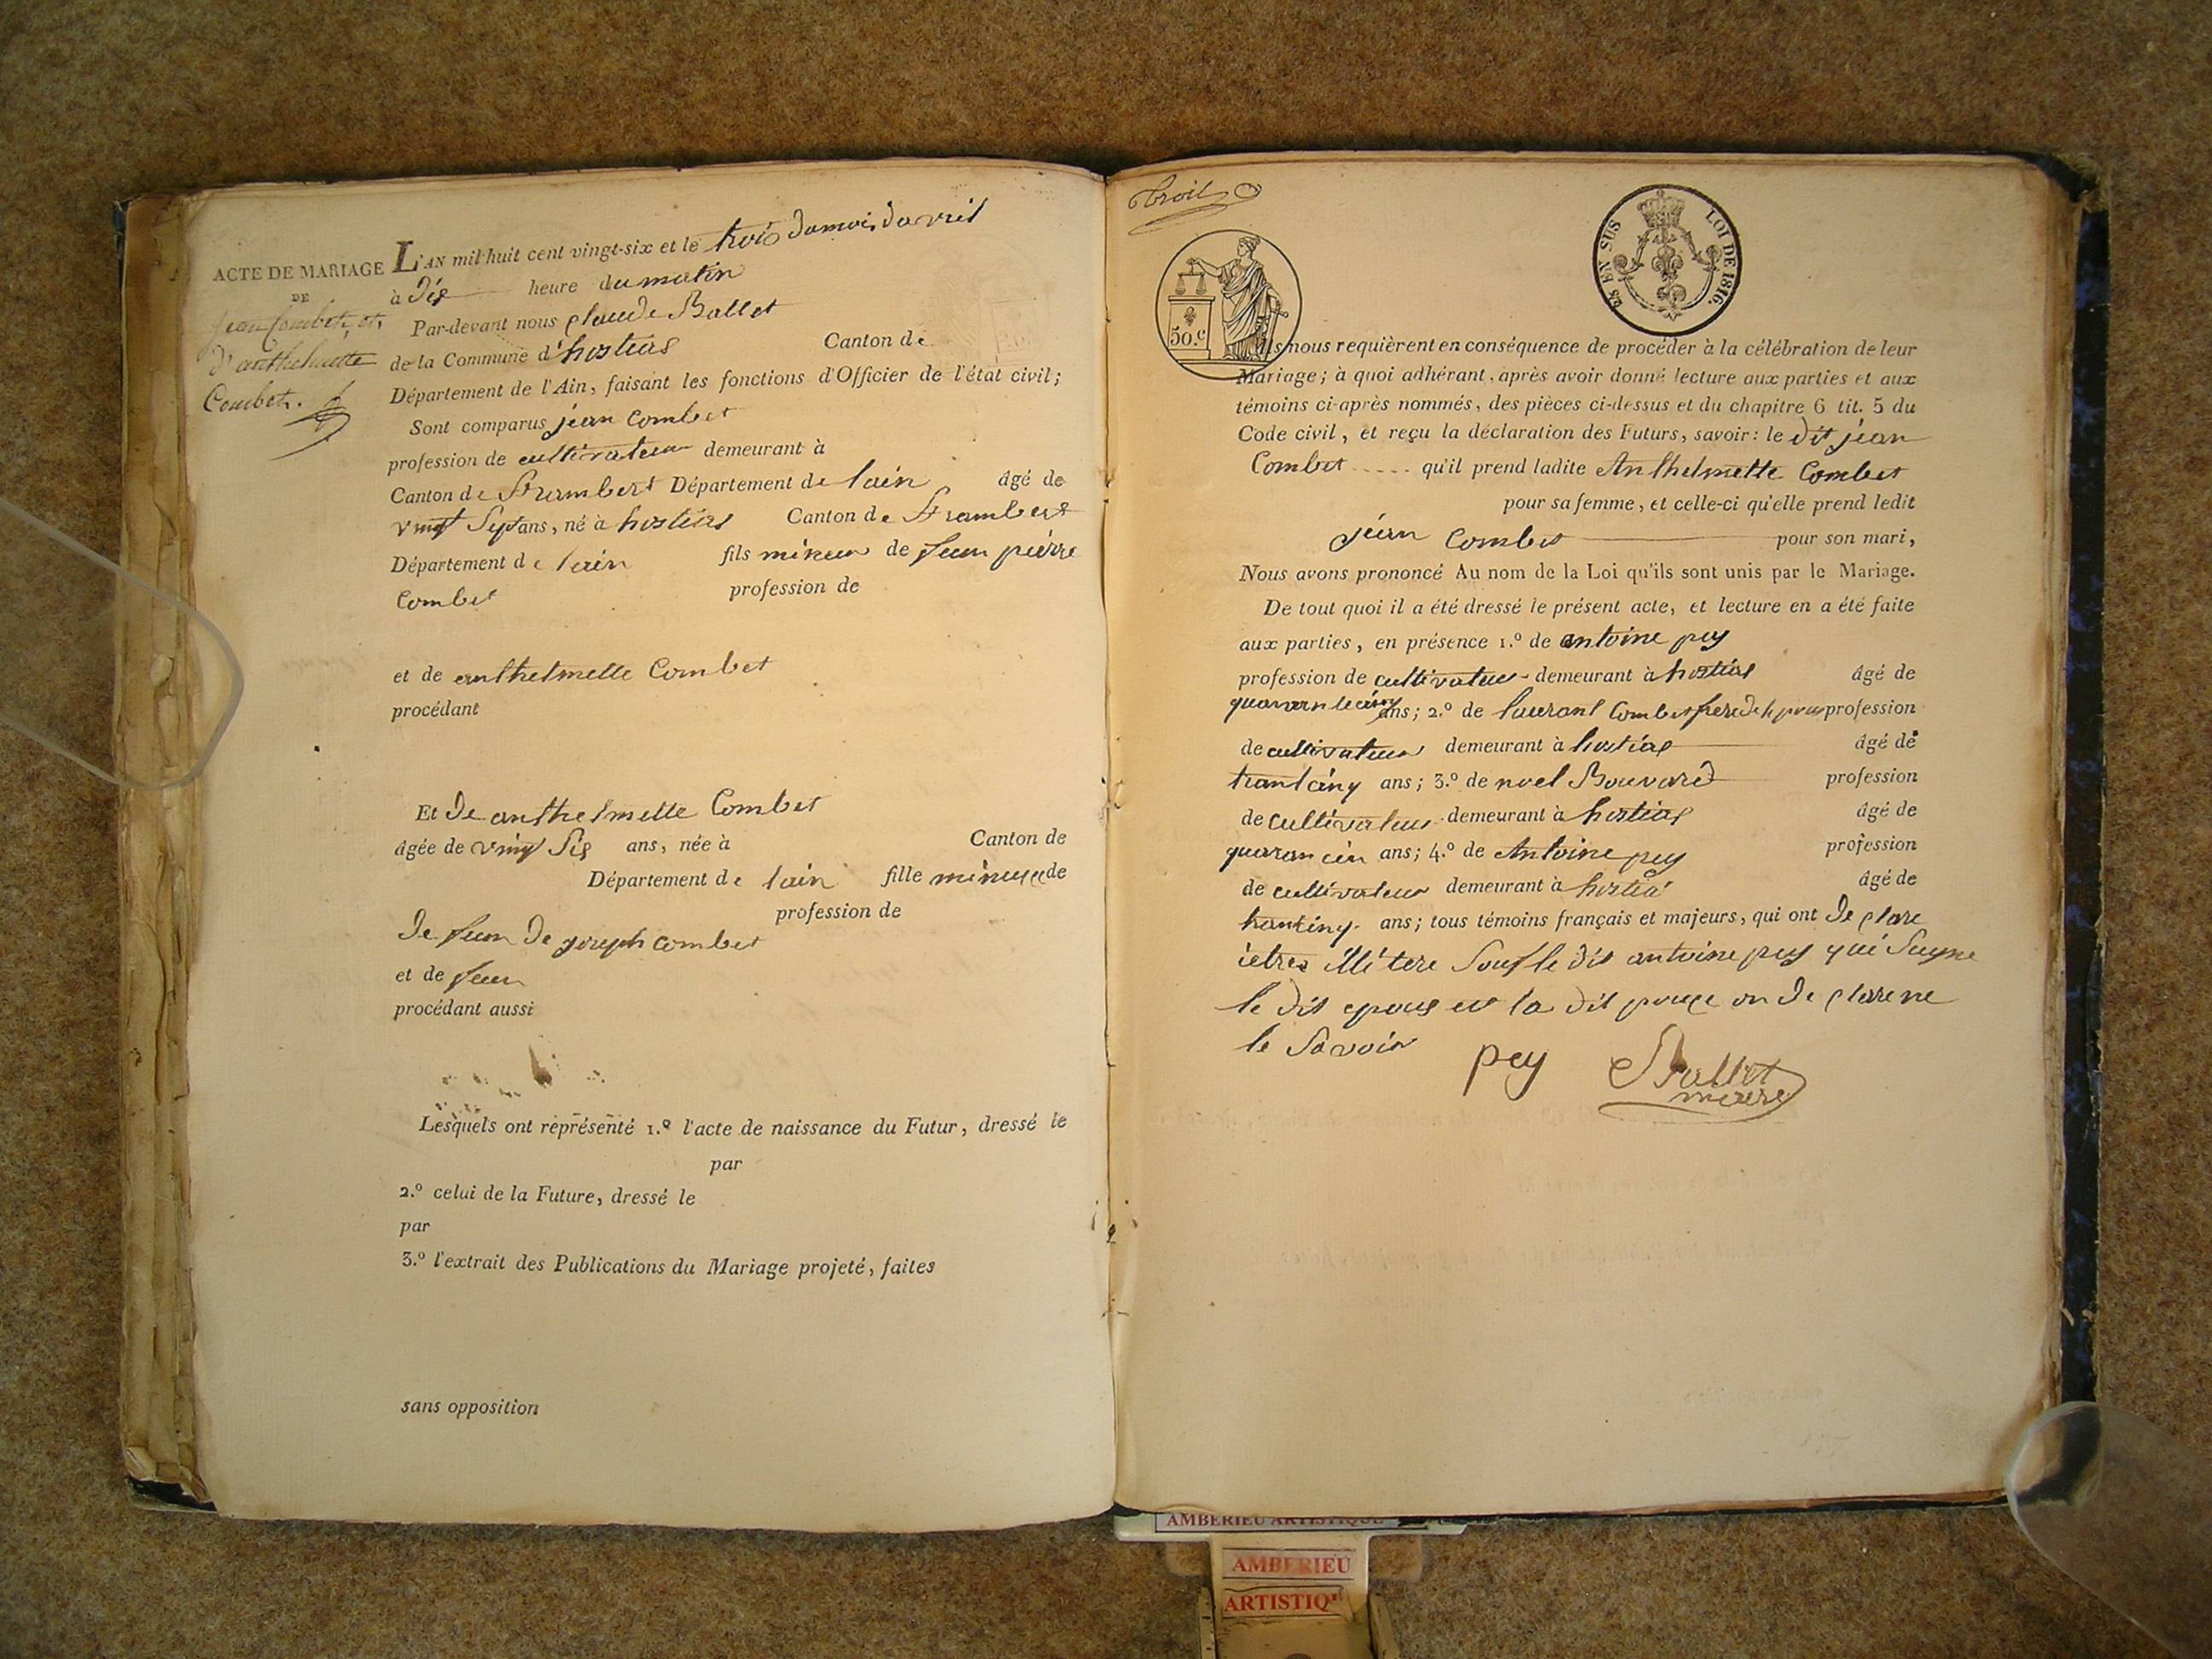 ACTE DE MARIAGE
DE
jean Combet, et
d'anthelmette
Combet.
L'AN mil huit cent vingt-six et le trois du mois davril
à dis heure du matin
Par-devant nous claude Ballet
de la Commune d'hostias Canton de
Département de l'Ain, faisant les fonctions d'Officier de l'état civil;
Sont comparus jean Combet
profession de cultivateur demeurant à
Canton de St rambert Département de lain âgé de
vingt Sept ans, né à hostias Canton de St rambert
Département de lain fils mineur de feu pierre
Combet profession de
et de anthelmette Combet
procédant
Et de anthelmette Combet
âgée de vingt Sis ans, née à Canton de
Département de lain fille mineure de
profession de
de feu de joseph combet
et de feu
procédant aussi
Lesquels ont représenté 1.º l'acte de naissance du Futur, dressé le
par
2.º celui de la Future, dressé le
par
3.º l'extrait des Publications du Mariage projeté, faites
sans opposition
troil
50.c
EN SUS
LOI DE 1816.
Ils nous requièrent en conséquence de procéder à la célébration de leur
Mariage; à quoi adhérant, après avoir donné lecture aux parties et aux
témoins ci-après nommés, des pièces ci-dessus et du chapitre 6 tit. 5 du
Code civil, et reçu la déclaration des Futurs, savoir: le dit jean
Combet ..... qu'il prend ladite Anthelmette Combet
pour sa femme, et celle-ci qu'elle prend ledit
jean Combet pour son mari,
Nous avons prononcé Au nom de la Loi qu'ils sont unis par le Mariage.
De tout quoi il a été dressé le présent acte, et lecture en a été faite
aux parties, en présence 1.º de antoine pey
profession de cultivateur demeurant à hostias âgé de
quarante cinq ans; 2.º de laurant Combet frere de profession
de cultivateur demeurant à hostias âgé de
trant cinq ans; 3.º de noel Bouvard profession
de cultivateur demeurant à hostias âgé de
quaran cin ans; 4.º de Antoine pey profession
de cultivateur demeurant à hostia âgé de
trantcinq ans; tous témoins français et majeurs, qui ont de clare
ietres illi tere Souf le dit antoine pey qui Suyne
le dit epous et la dit pouce on de clare ne
le Savoir
pey Ballet
maire
AMBERIEU ARTISTIQUE
AMBERIEU
ARTISTIQ